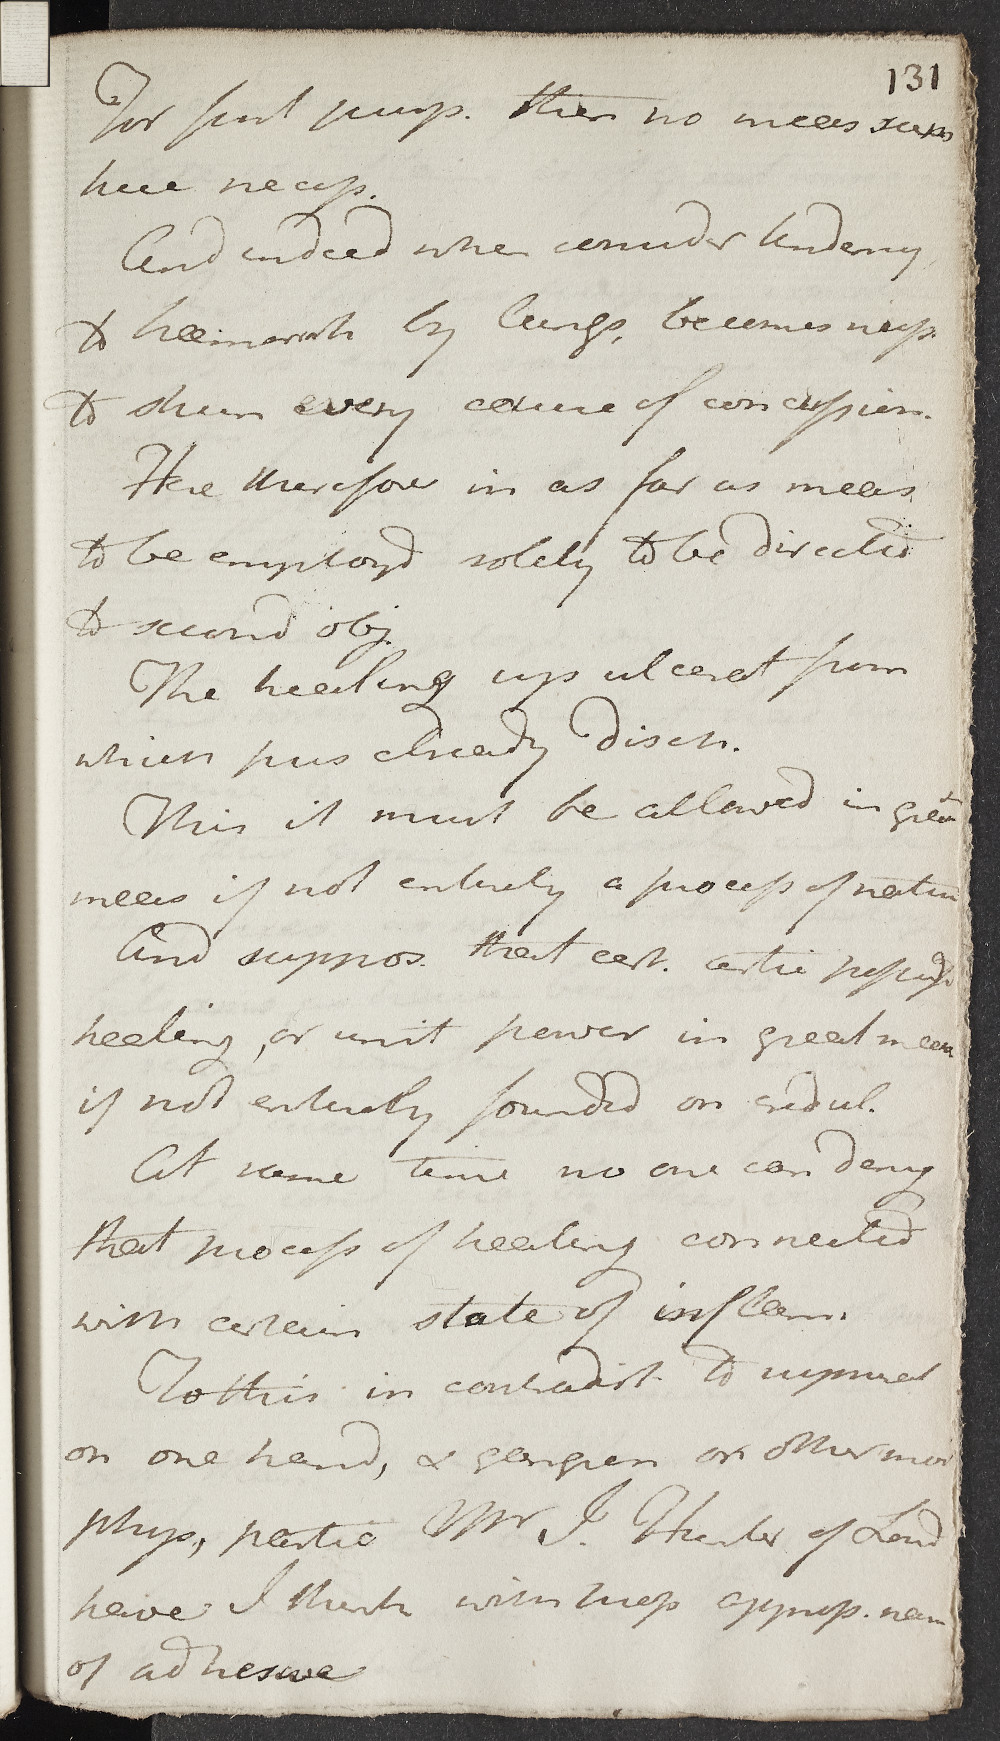 131
For first purp. then no meas seems
here necess.
And indeed when consider tendency
to haemorrh by lungs, becomes necess.
to shun every cause of concussion.
Here therefore in as far as meas
to be employd solely to be directed
to second obj.
The healing up ulcerat from
which pus already disch.
This it must be allowed in great
meas if not entirely a process of natur
And suppos. that cert. artic possess
healing, or unit power in great meas
if not entirely founded on credul.
At same time no one can deny
that process of healing connected
with certain state of inflam.
To this in contradist. to suppurat
on one hand, & gangren on other mod
phys, partic Mr J. Hunter of Lond
have I think with much approp. nam
of adhesive